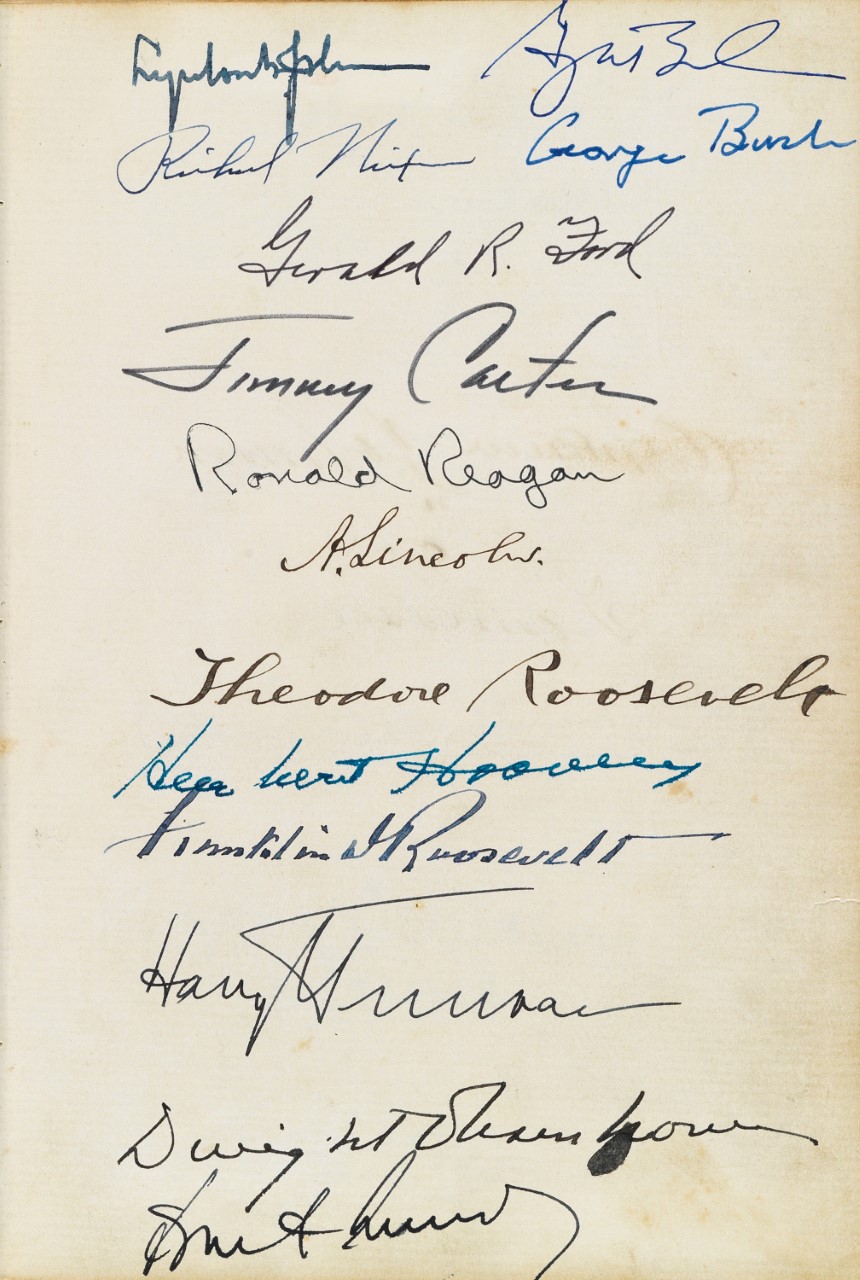 Lyndon B Johnson George W Bush
Richard Nixon George Bush
Gerald R. Ford
Jimmy Carter
Ronald Reagan
A. Lincoln.
Theodore Roosevelt
Herbert Hoover
Franklin D Roosevelt
Harry Truman
Dwight Eisenhower